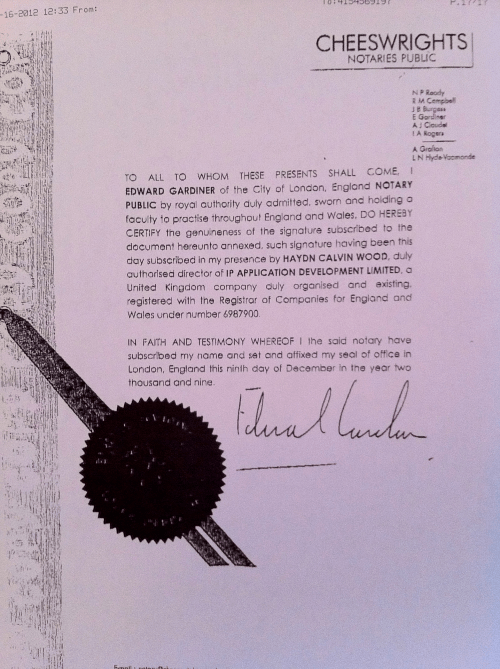 -16-2012 12:33 From:
To:4154569197
P.17/17
CHEESWRIGHTS
NOTARIES PUBLIC
N P Ready
R M Campbell
J B Burgess
E Gardiner
A J Claudet
I A Rogers
A Grafton
L N Hyde-Vaamonde
TO ALL TO WHOM THESE PRESENTS SHALL COME, I
EDWARD GARDINER of the City of London, England NOTARY
PUBLIC by royal authority duly admitted, sworn and holding a
faculty to practise throughout England and Wales, DO HEREBY
CERTIFY the genuineness of the signature subscribed to the
document hereunto annexed, such signature having been this
day subscribed in my presence by HAYDN CALVIN WOOD, duly
authorised director of IP APPLICATION DEVELOPMENT LIMITED, a
United Kingdom company duly organised and existing,
registered with the Registrar of Companies for England and
Wales under number 6987900.
IN FAITH AND TESTIMONY WHEREOF I the said notary have
subscribed my name and set and affixed my seal of office in
London, England this ninth day of December in the year two
thousand and nine.
Edward Gardiner